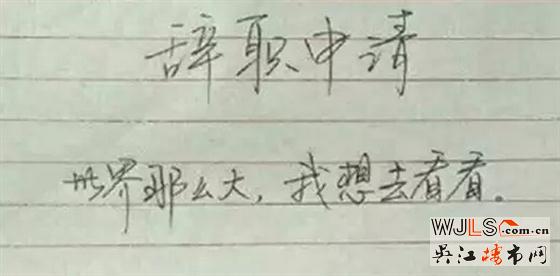 辞职申请
世界那么大，我想去看看。
WJLS.com.cn
吴江楼市网